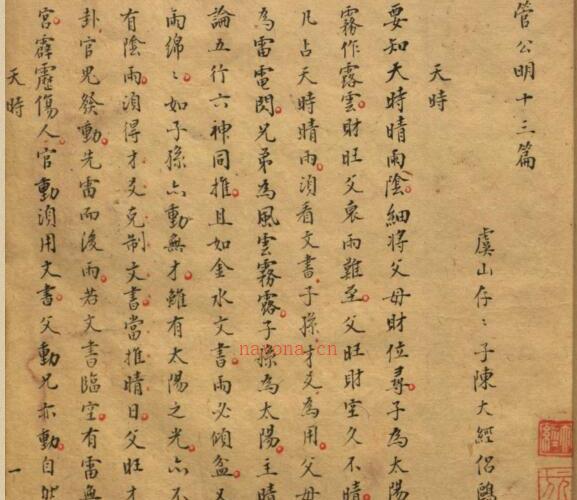 管公明十三篇
虞山存〻子陳大經侶鷗
天時
要知天時晴雨陰細將父母財位尋子為太陽
霧作露雲財旺父衰雨難至父旺財空久不晴
凡占天時晴雨須看文書子孫才爻為用父母
為雷電閃兄弟為風雲霧露子孫為太陽主晴
論五行六神同推且如金水文書雨必傾盆又
雨綿〻如子孫亦動無才雖有太陽之光亦不
有陰雨須得才爻克制文書當推晴日父旺才
卦官鬼發動先雷而後雨若文書臨空有雷無
宮霹靂傷人官動須用文書父動兄亦動自然
天時
一
narona.cn